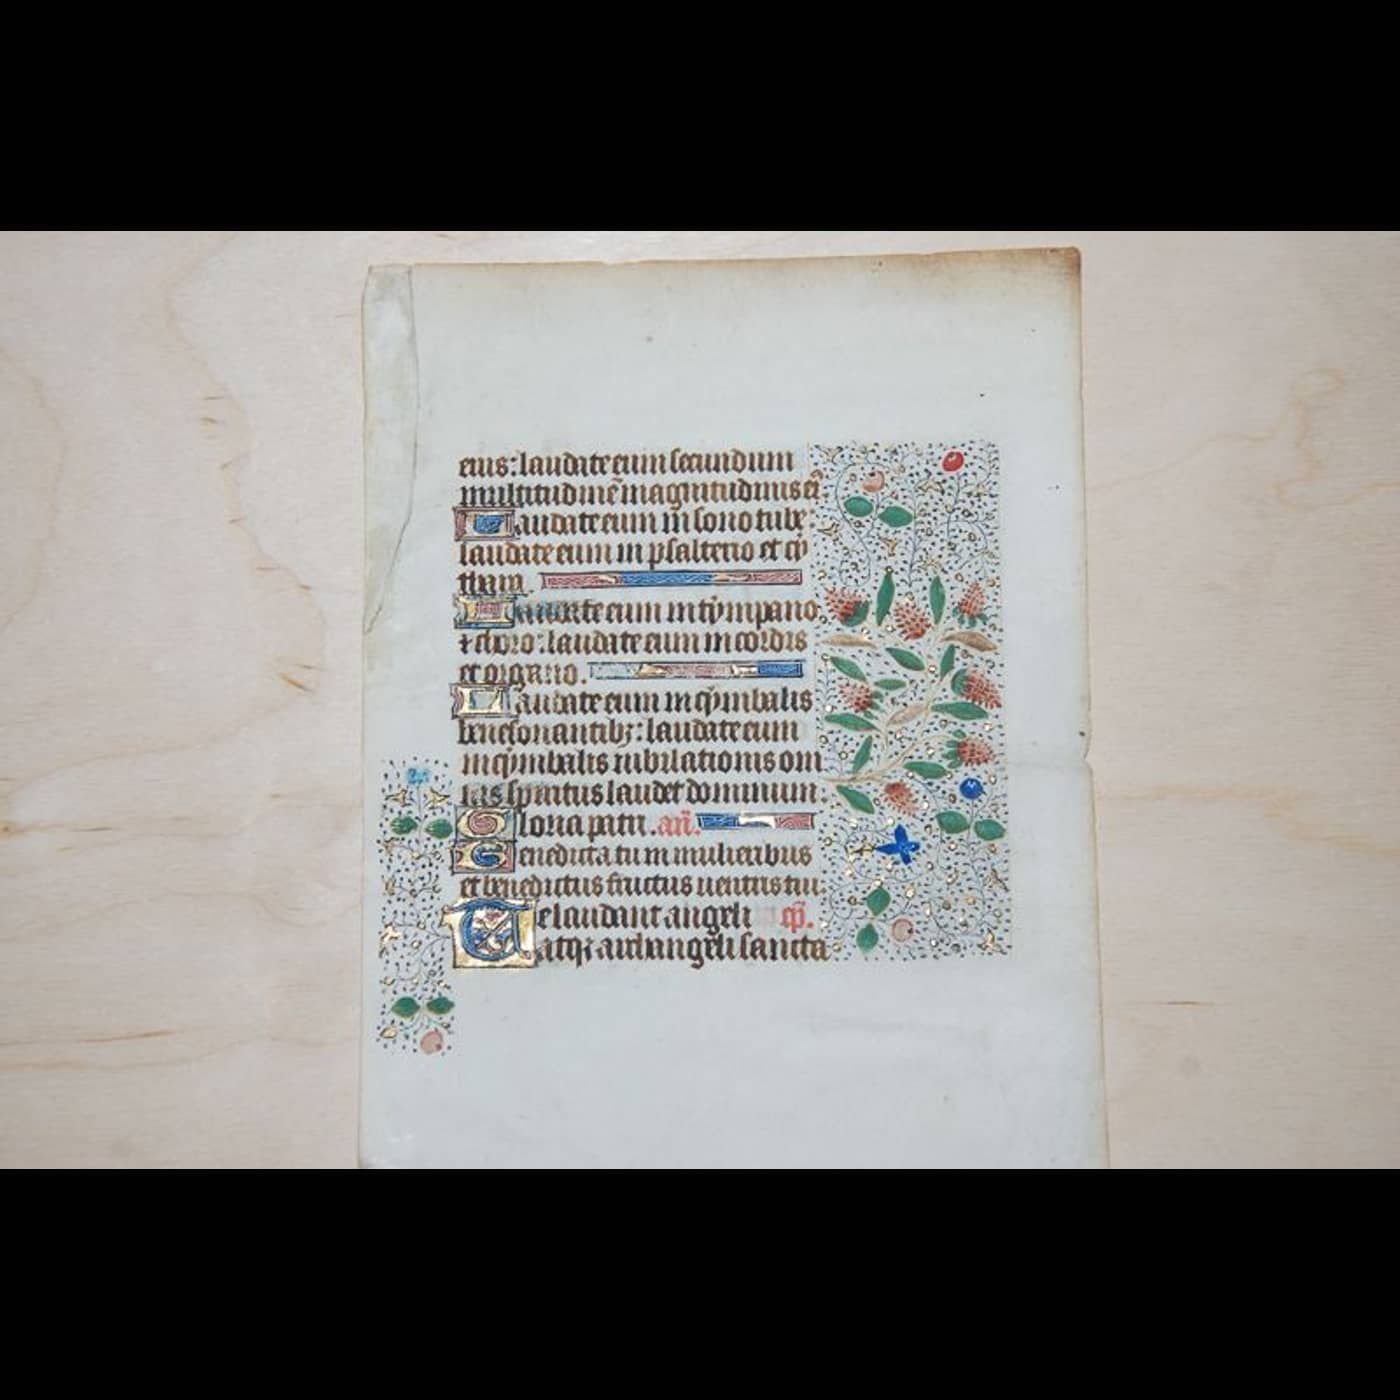 eius: laudate eum secundum
multitudinē magnitudinis ei⁹.
Laudate eum in sono tube:
laudate eum in psalterio et cy
thara.
Laudate eum in tympano
⁊ choro: laudate eum in cordis
et organo.
Laudate eum in cymbalis
benesonantibꝫ: laudate eum
in cymbalis iubilationis om
nis spiritus laudet dominum.
Gloria patri. añ.
Benedicta tu in mulieribus
et benedictus fructus uentris tui.
Te laudant angeli cp̄.
atqꝫ archangeli sancta